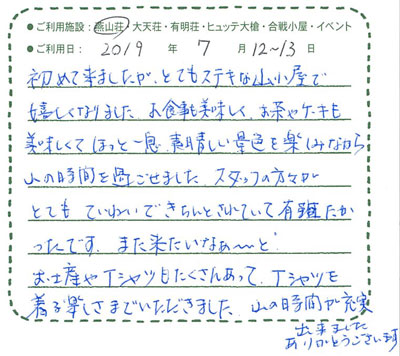 ●ご利用施設：燕山荘・大天荘・有明荘・ヒュッテ大槍・合戦小屋・イベント
●ご利用日：2019年7月12～13日
初めて来ましたが、とてもステキな山小屋で
嬉しくなりました。お食事も美味しく、お茶やケーキも
美味しくてほっと一息、素晴しい景色を楽しみながら
山の時間を過ごせました。スタッフの方々が
とてもていねいできちんとされていて有難たか
ったです。また来たいなぁ～と。
お土産やTシャツもたくさんあって、Tシャツを
着る楽しさまでいただきました。山の時間が充実
出来ました
ありがとうございます